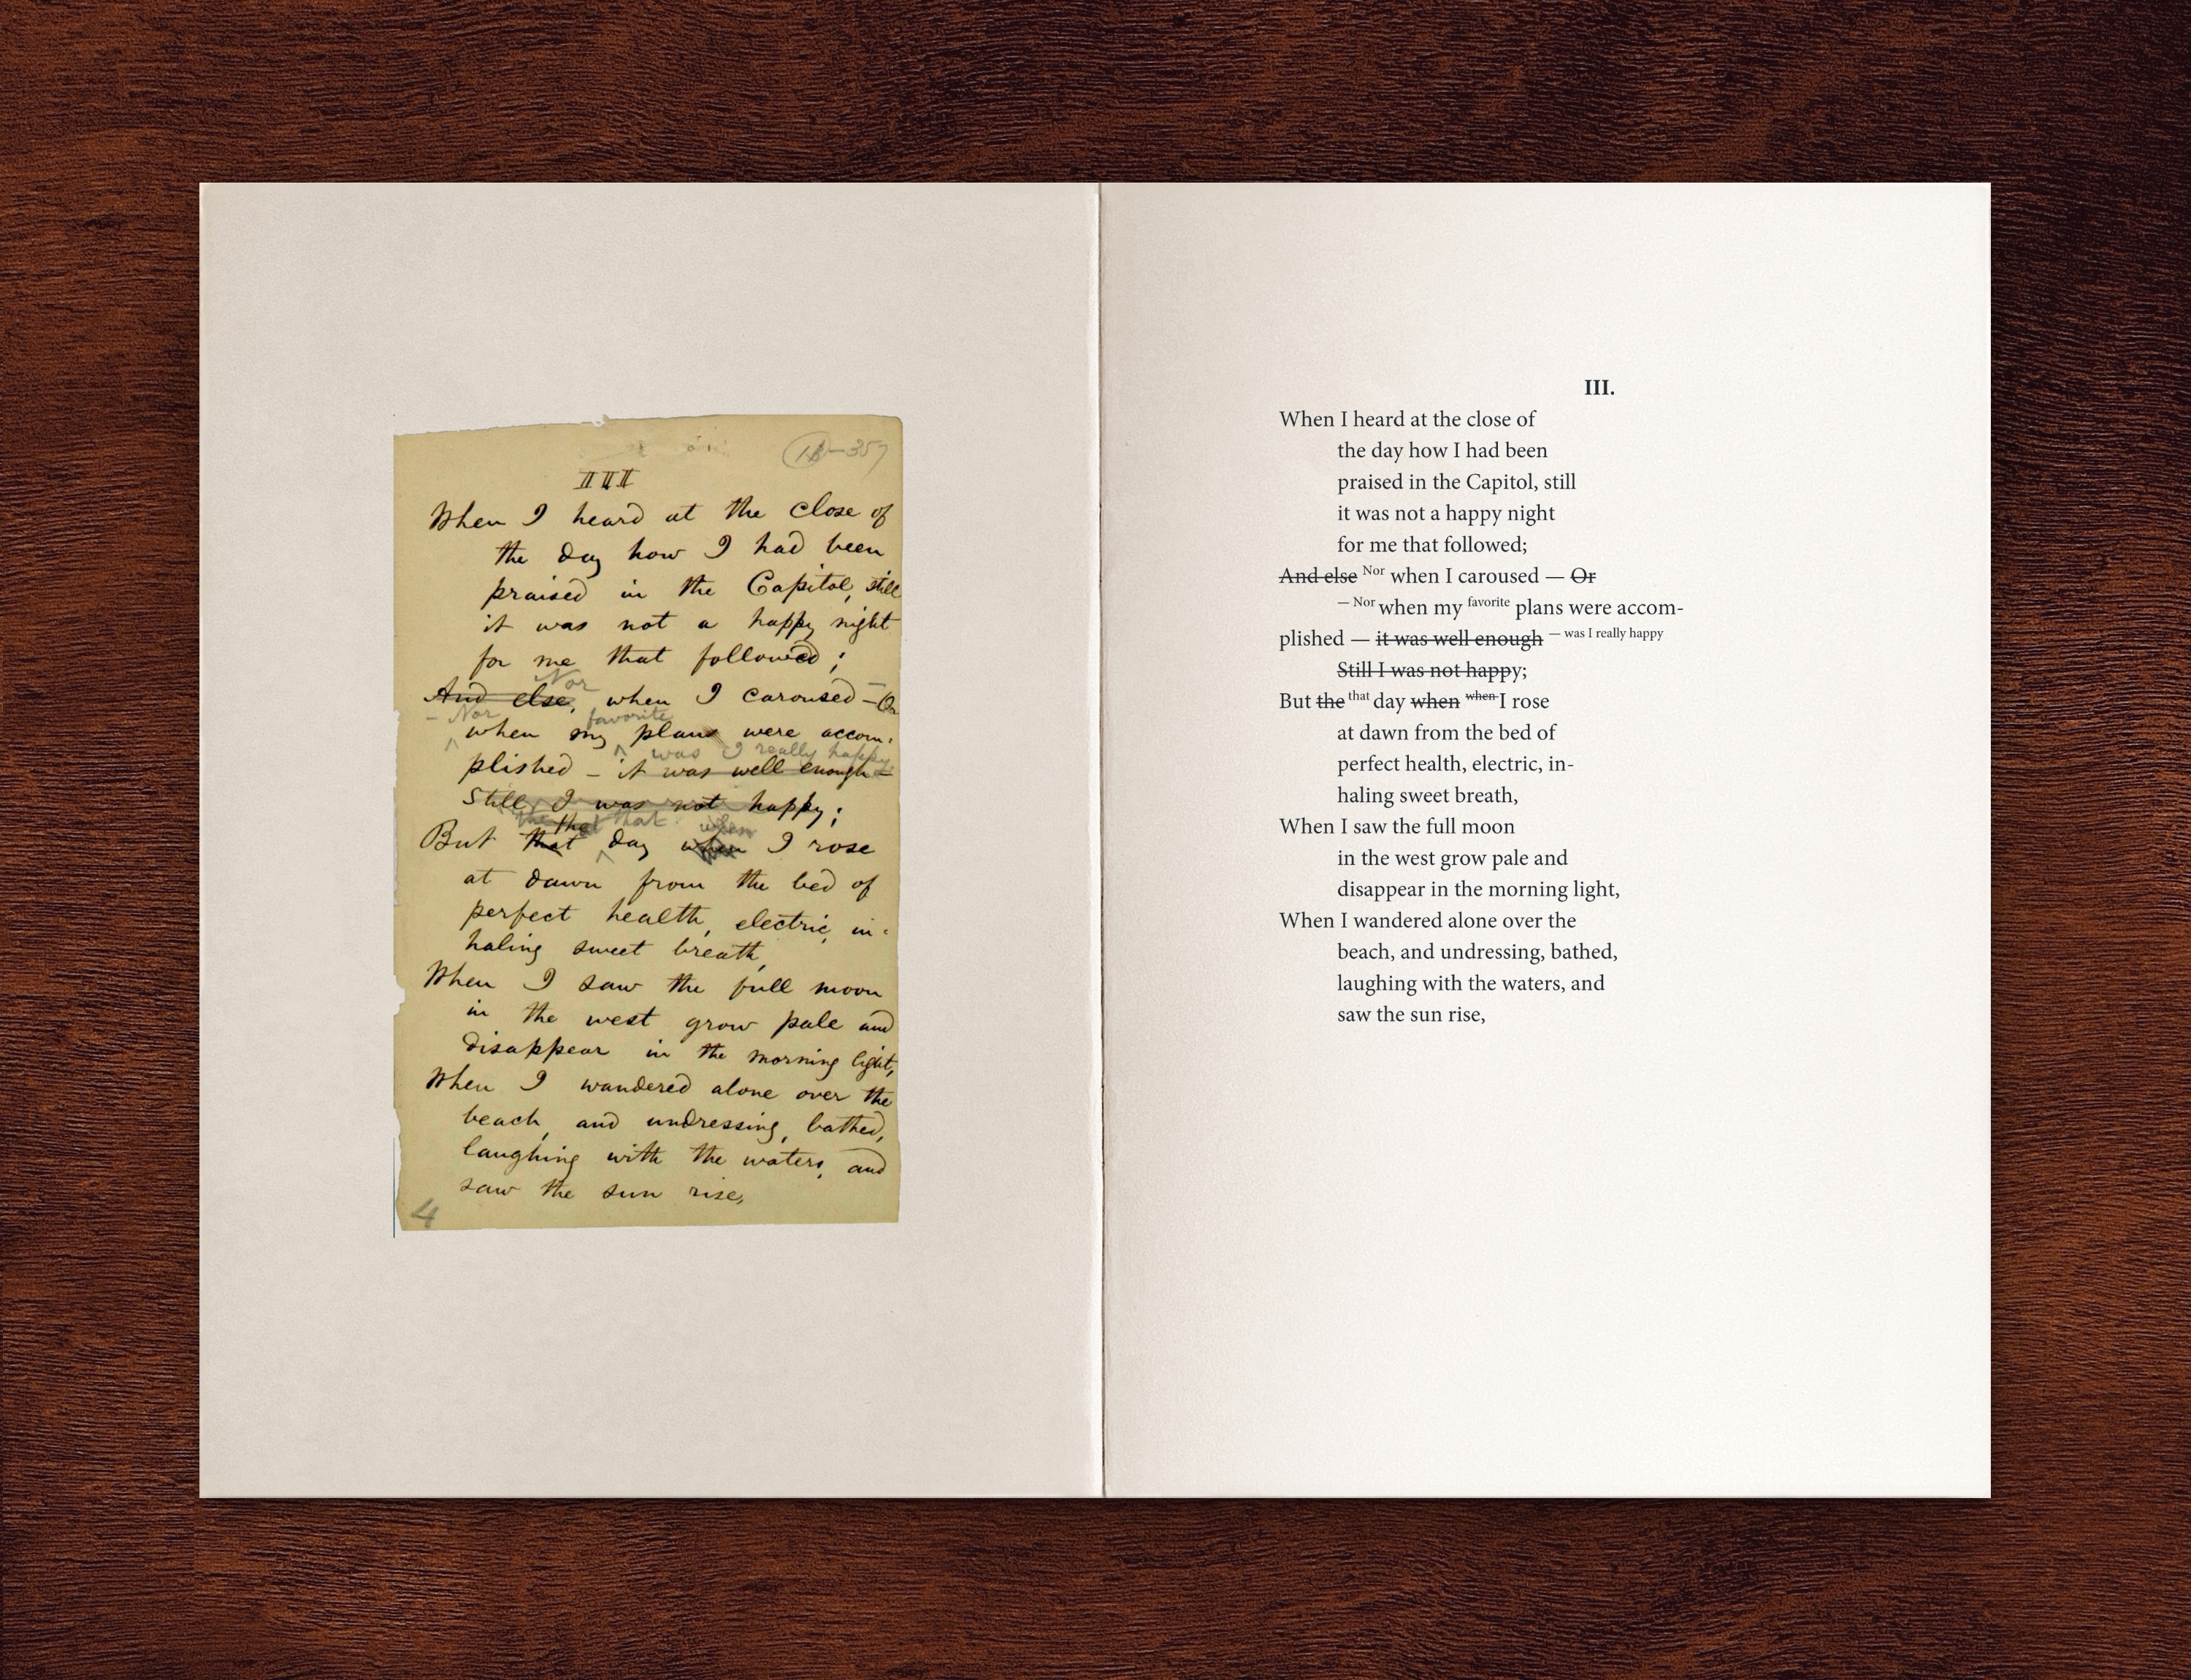 III
When I heard at the close of
the day how I had been
praised in the Capitol, still
it was not a happy night
for me that followed;
Nor
And else, when I caroused — Or
— Nor favorite
when my plans were accom-
was I really happy
plished — it was well enough —
Still I was not happy;
the the that when
But that day when I rose
at dawn from the bed of
perfect health, electric, in-
haling sweet breath,
When I saw the full moon
in the west grow pale and
disappear in the morning light,
When I wandered alone over the
beach, and undressing, bathed,
laughing with the waters, and
saw the sun rise,
4
III.
When I heard at the close of
the day how I had been
praised in the Capitol, still
it was not a happy night
for me that followed;
And else Nor when I caroused — Or
— Nor when my favorite plans were accom-
plished — it was well enough — was I really happy
Still I was not happy;
But the that day when when I rose
at dawn from the bed of
perfect health, electric, in-
haling sweet breath,
When I saw the full moon
in the west grow pale and
disappear in the morning light,
When I wandered alone over the
beach, and undressing, bathed,
laughing with the waters, and
saw the sun rise,